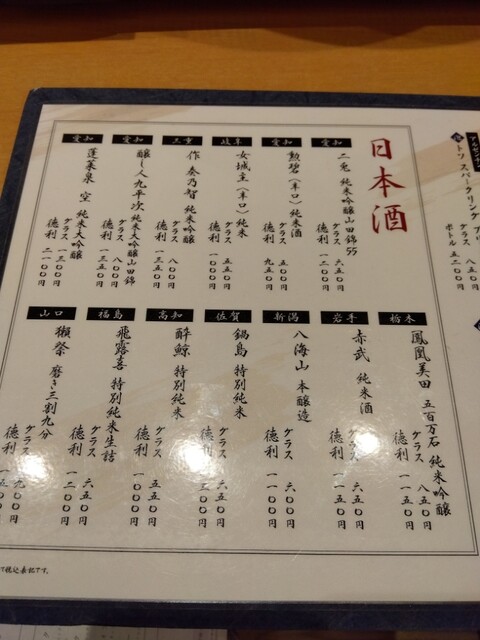 日本酒
愛知
二兎 純米吟醸山田錦55
グラス 六五〇円
徳利 一一〇〇円
愛知
勲碧(辛口)純米酒
グラス 五五〇円
徳利 九五〇円
岐阜
女城主(辛口)純米
グラス 五五〇円
徳利 一〇〇〇円
三重
作 奏乃智 純米吟醸
グラス 八〇〇円
徳利 一三五〇円
愛知
醸し人九平次 純米大吟醸山田錦
グラス 八〇〇円
徳利 一三五〇円
愛知
蓬莱泉 空 純米大吟醸
グラス 一三〇〇円
徳利 二一〇〇円
栃木
鳳凰美田 五百万石 純米吟醸
グラス 八五〇円
徳利 一一五〇円
岩手
赤武 純米酒
グラス 六五〇円
徳利 一一五〇円
新潟
八海山 本醸造
グラス 六〇〇円
徳利 一一〇〇円
佐賀
鍋島 特別純米
グラス 六五〇円
徳利
高知
酔鯨 特別純米
グラス 五五〇円
徳利 一一〇〇円
福島
飛露喜 特別純米生詰
グラス 六五〇円
徳利 一二〇〇円
山口
獺祭 磨き三割九分
グラス 九〇〇円
徳利 一五〇〇円
アルゼンチン
トソ スパークリング ブリ
グラス 八五〇円
ボトル 五二〇〇円
税込表記です。